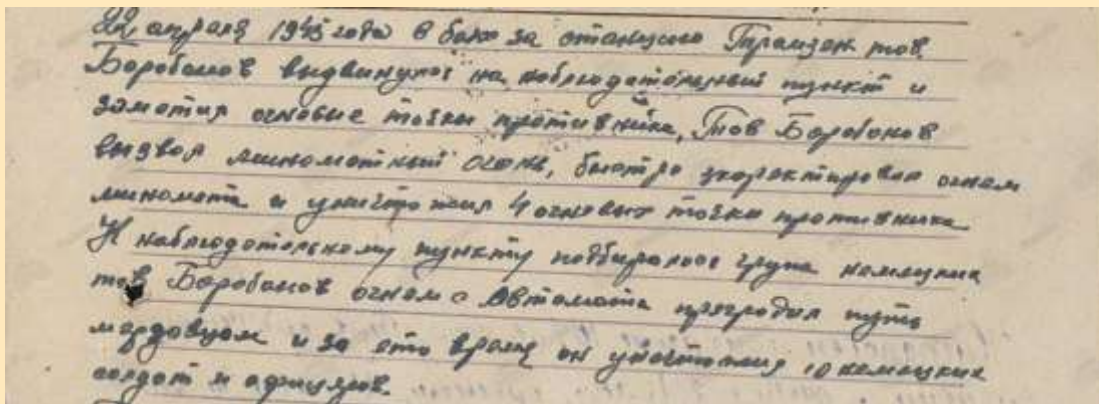 22 апреля 1945 года в бою за станцию Трамзен тов
Барабанов выдвинулся на наблюдательный пункт и
заметил огневые точки противника, Тов Барабанов
вызвал минометный огонь, быстро скоректировал огнем
миномета и уничтожил 4 огневых точки противника
К наблюдательному пункту подбиралось група немецких
тов Барабанов огнем с Автомата преградил путь
мордовцам и за это время он уничтожил 10 немецких
солдат и афицеров.